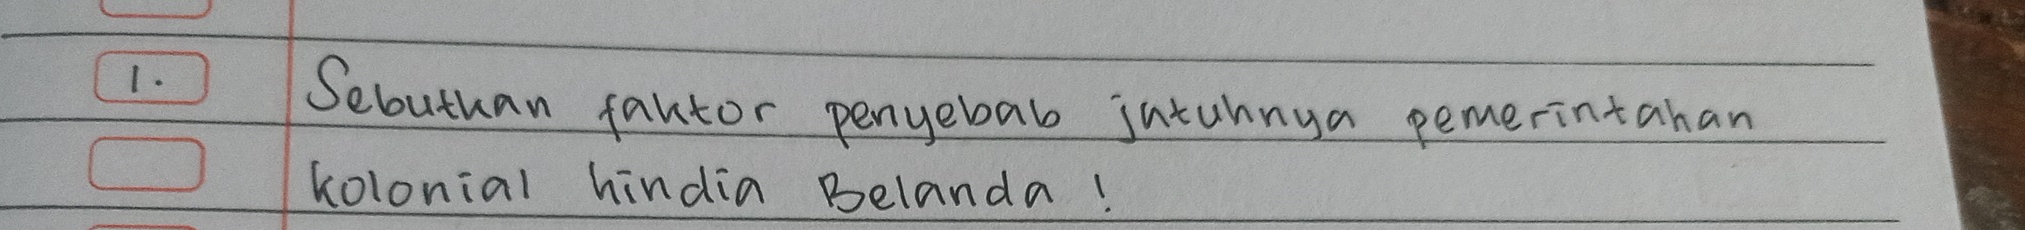 1. Sebutkan faktor penyebab jatuhnya pemerintahan
kolonial hindia Belanda !